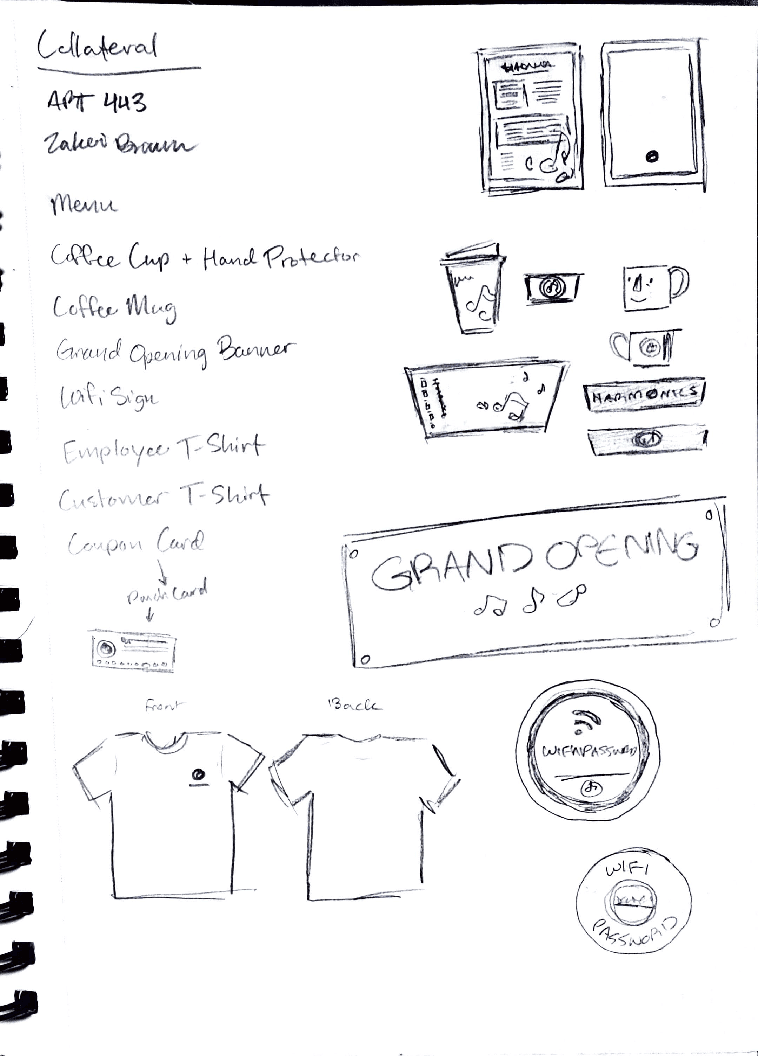 Collateral
ART 443
Menu
Coffee Cup + Hand Protector
Coffee Mug
Grand Opening Banner
Wifi Sign
Employee T-Shirt
Customer T-Shirt
Coupon Card
Punch Card
HARMONICS
GRAND OPENING
Front
Back
WIFI PASSWORD
WIFI
PASSWORD